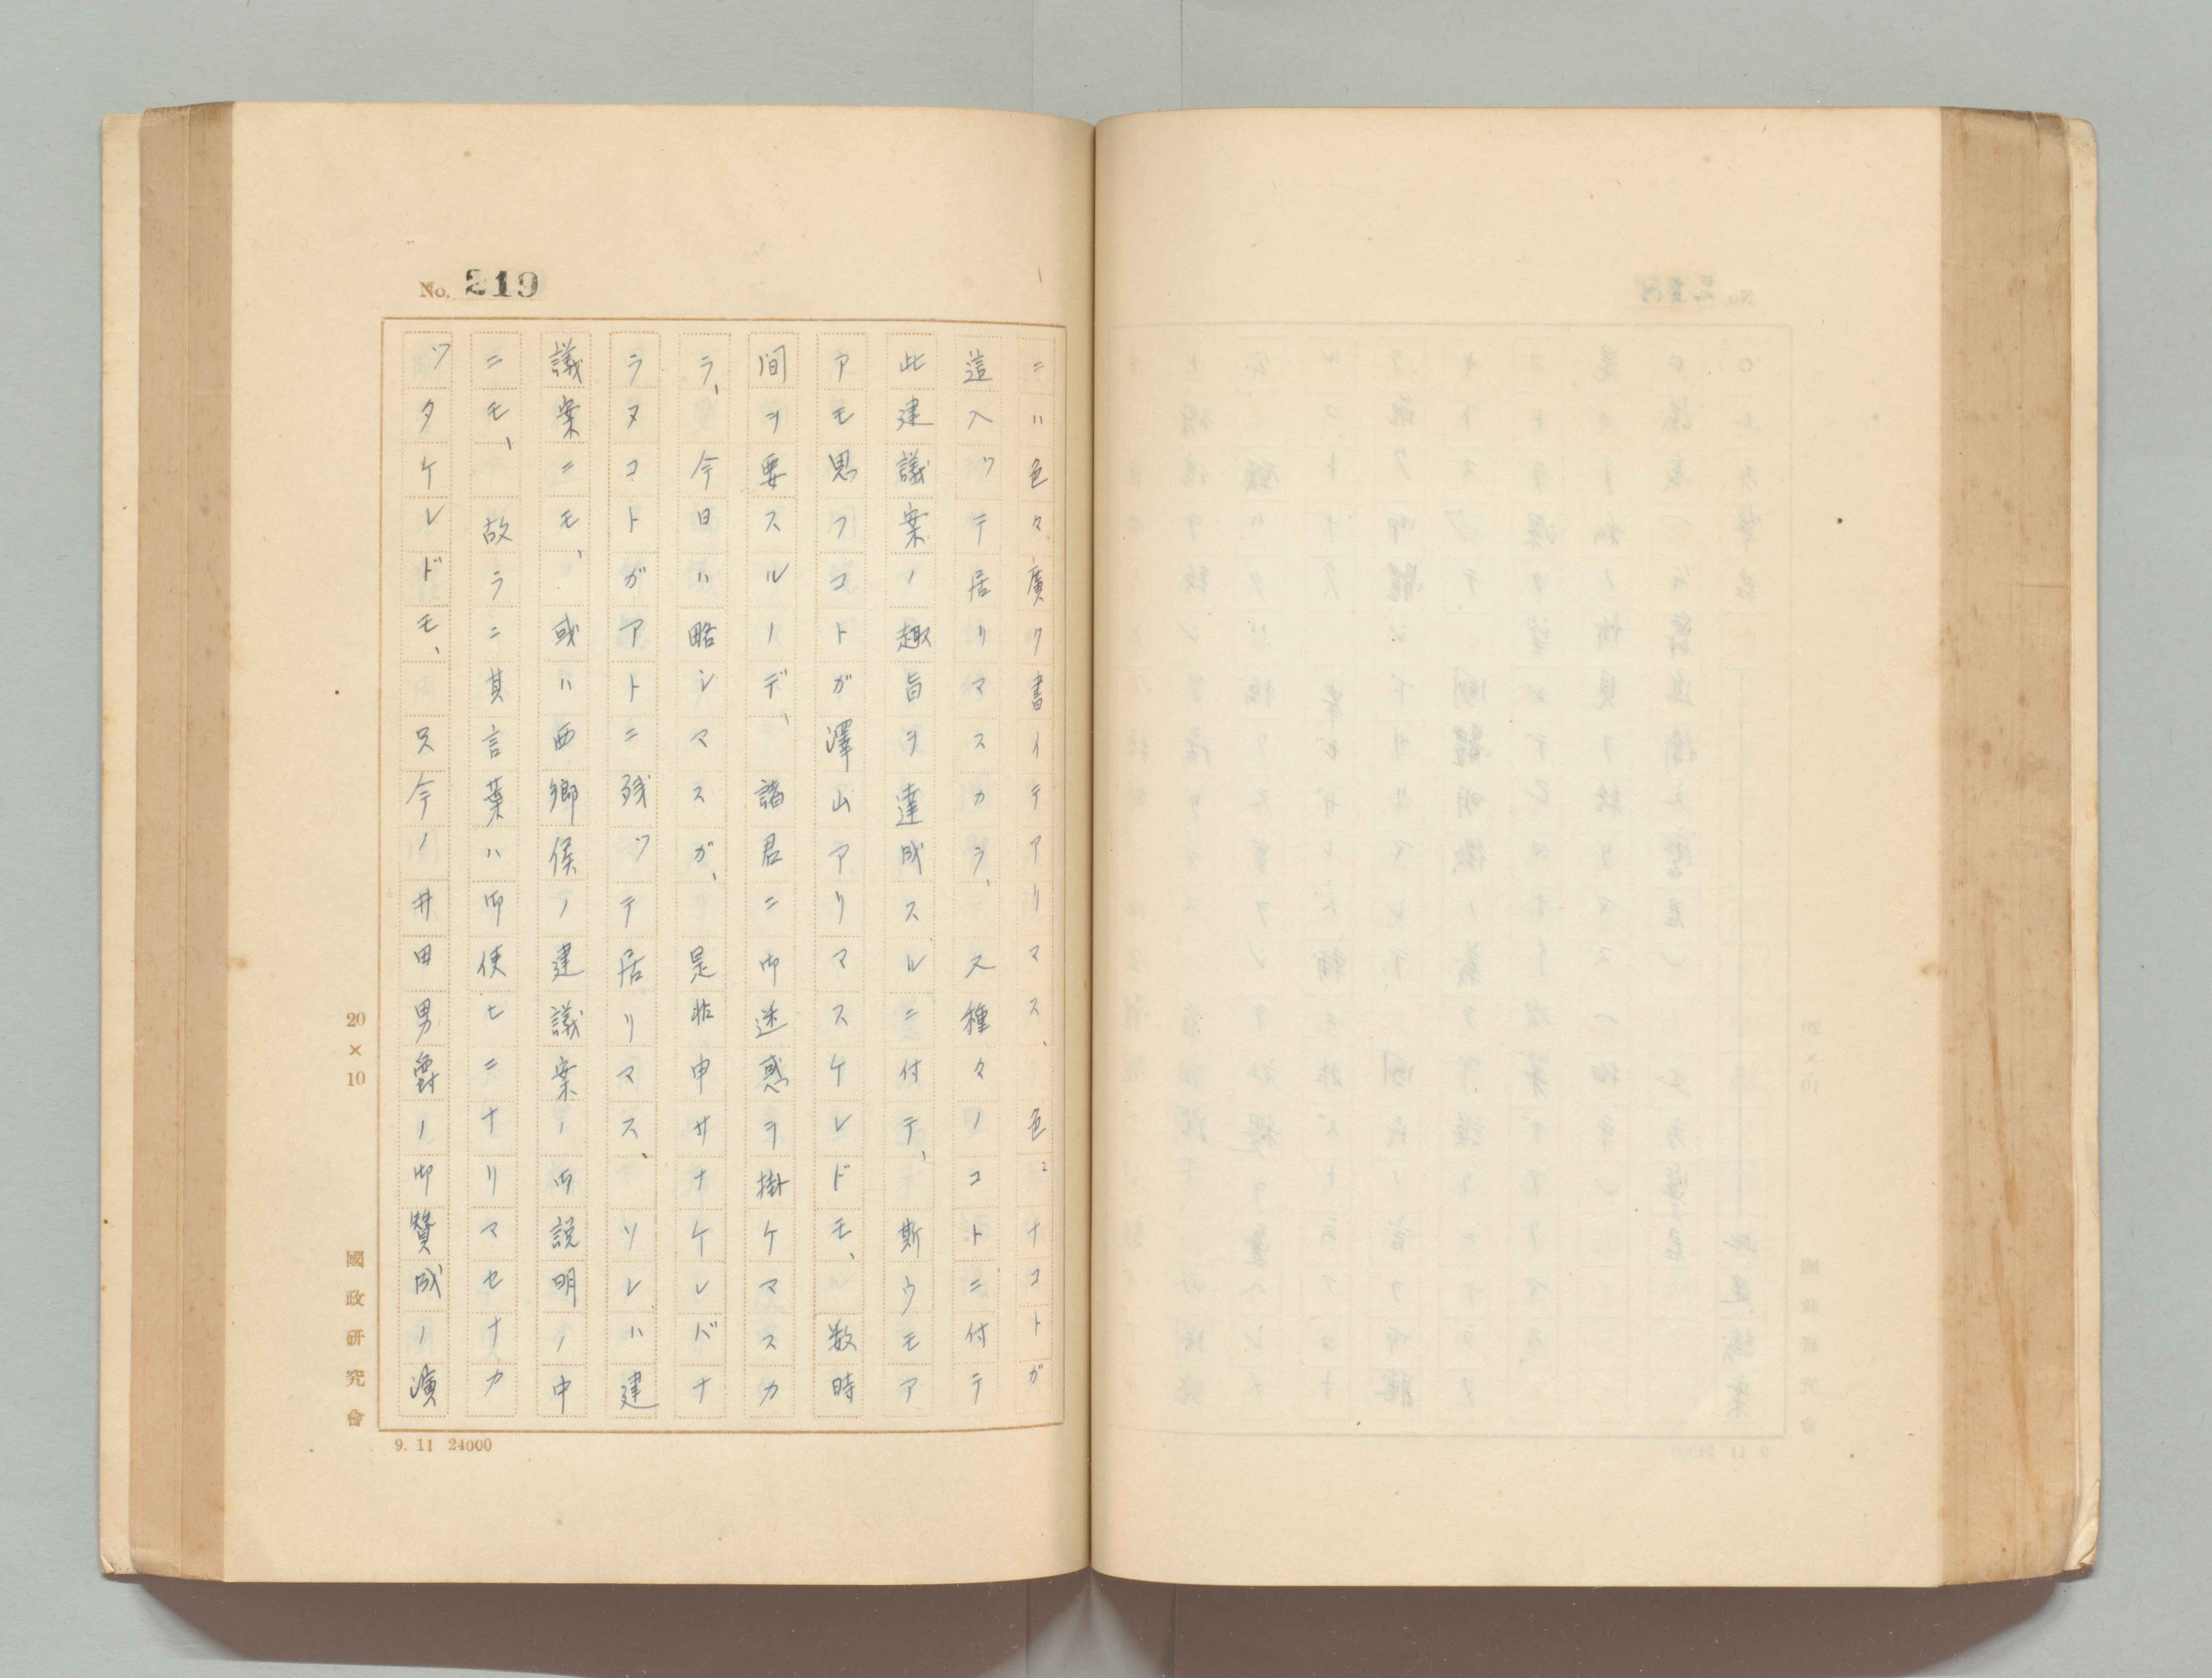 No. 219
ニハ色々廣ク書イテアリマス、色々ナコトガ
這入ツテ居リマスカラ、又種々ノコトニ付テ
此建議案ノ趣旨ヲ達成スルニ付テ、斯ウモア
アモ思フコトガ澤山アリマスケレドモ、数時
間ヲ要スルノデ、諸君ニ御迷惑ヲ掛ケマスカ
ラ、今日ハ略シマスガ、是非申サナケレバナ
ラヌコトガアトニ残ツテ居リマス、ソレハ建
議案ニモ、或ハ西郷侯ノ建議案ノ御説明ノ中
ニモ、故ラニ其言葉ハ御使ヒニナリマセナカ
ツタケレドモ、只今ノ井田男爵ノ御贊成ノ演
20×10
國政研究會
9. 11 24000